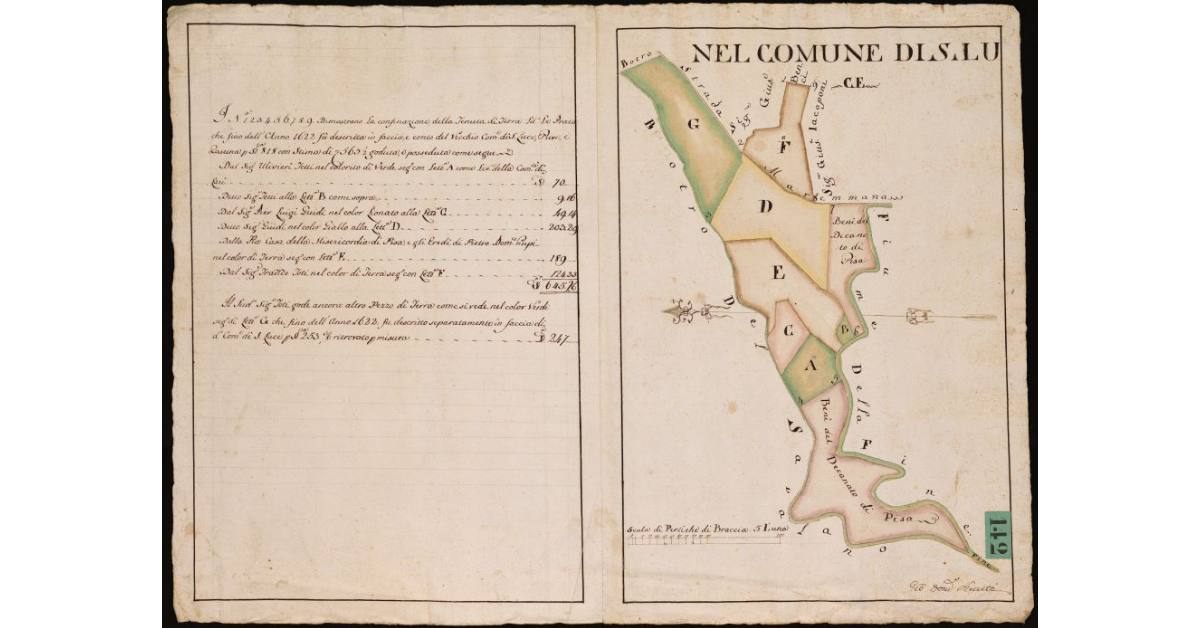 I N.i 1 2 3 4 5 6 7 8 9. Dimostrano la confinazione della Tenuta di Terra
che fino dell'Anno 1622 fù descritta in faccia, e conto del Vecchio Com.e di S. Luce, e
Pastina p S.a 818 con Stima di posseduta come segue
Dal Sig.r Ulivieri Tetti nel colorito di Verde seg.to con Lett.a A come Liv. della Com.tà di
Lari S 70
Detto Sig.r Tetti alla Lett.a B come sopra 9.16
Dal Sig.r Pier Luigi Guidi nel color Lionato alla Lett.a C 49.4
Detto Sig.r Guidi nel color Giallo alla Lett.a D 203.29
Dalla Pia Casa della Misericordia di Pisa e gli Eredi di Pietro Dom.co
nel color di Terra seg.to con Lett.a E 189
Dal Sig.r Teti nel color di Terra seg.to con Lett.a F 124.33
S 645.76
Il Sud.o Sig.r Teti gode ancora altro Pezzo di Terra come si vede nel color Verde
seg.to di Lett.a G che fino dell'Anno 1622 fù descritto separatamente in faccia di
d.o Com.e di S. Luce p S.a 253 e ritrovato p misura S 247
NEL COMUNE DI S. LU
C.F.
Botro
Strada
Maremmana
Beni
Sig.r Gius.e Iacoponi
G
F
D
E
C
B
A
Beni del
Decana
to di
Pisa
Fiume Della Fine
Botro Del Sanatano
Beni del Decanato di Pisa
Fine
Scala di Pertiche di Braccia 5 L'una
24-1